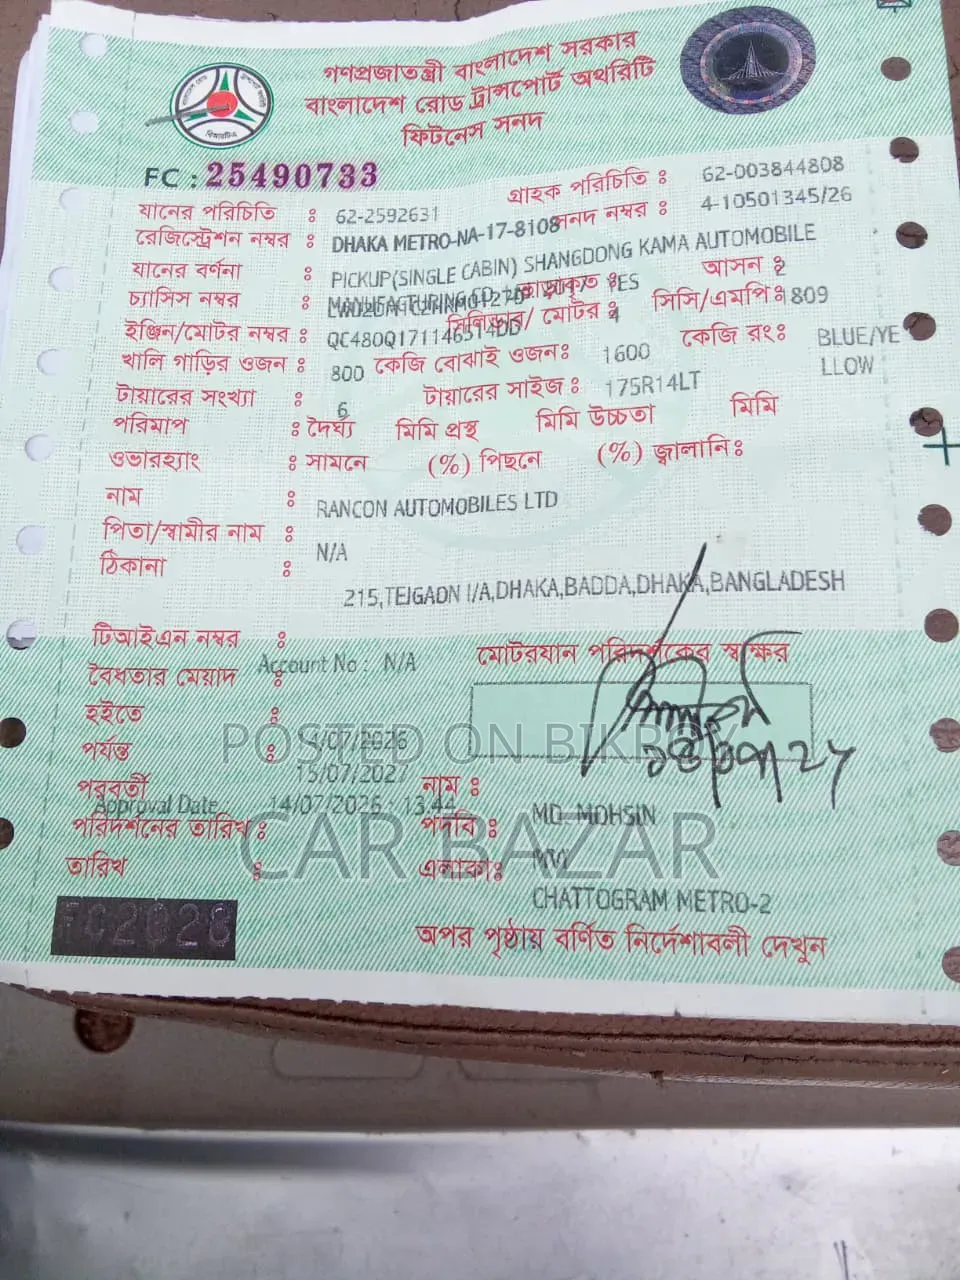 গণপ্রজাতন্ত্রী বাংলাদেশ সরকার
বাংলাদেশ রোড ট্রান্সপোর্ট অথরিটি
ফিটনেস সনদ
বিআরটিএ
FC : 25490733
যানের পরিচিতি : 62-2592631 গ্রাহক পরিচিতি : 62-003844808
রেজিস্ট্রেশন নম্বর : DHAKA METRO-NA-17-8108 সনদ নম্বর : 4-10501345/26
যানের বর্ণনা : PICKUP(SINGLE CABIN) SHANGDONG KAMA AUTOMOBILE
MANUFACTURING CO. YES আসন : 2
চ্যাসিস নম্বর :
ইঞ্জিন/মোটর নম্বর : QC480Q171146514DD সিলিন্ডার/ মোটর : 4 সিসি/এমপি : 1809
খালি গাড়ির ওজন : 800 কেজি বোঝাই ওজন : 1600 কেজি রং : BLUE/YE
LLOW
টায়ারের সংখ্যা : 6 টায়ারের সাইজ : 175R14LT
পরিমাপ : দৈর্ঘ্য মিমি প্রস্থ মিমি উচ্চতা মিমি
ওভারহ্যাং : সামনে (%) পিছনে (%) জ্বালানি :
নাম : RANCON AUTOMOBILES LTD
পিতা/স্বামীর নাম : N/A
ঠিকানা :
215,TEJGAON I/A,DHAKA,BADDA,DHAKA,BANGLADESH
টিআইএন নম্বর :
Account No : N/A
মোটরযান পরিদর্শকের স্বাক্ষর
বৈধতার মেয়াদ :
হইতে : 14/07/2026
পর্যন্ত : 15/07/2027
POSTED ON BIKROY
পরবর্তী
Approval Date : 14/07/2026 : 13.44
পরিদর্শনের তারিখ :
নাম : MD. MOHSIN
পদবি : MVI
CAR BAZAR
তারিখ :
এলাকা : CHATTOGRAM METRO-2
অপর পৃষ্ঠায় বর্ণিত নির্দেশাবলী দেখুন